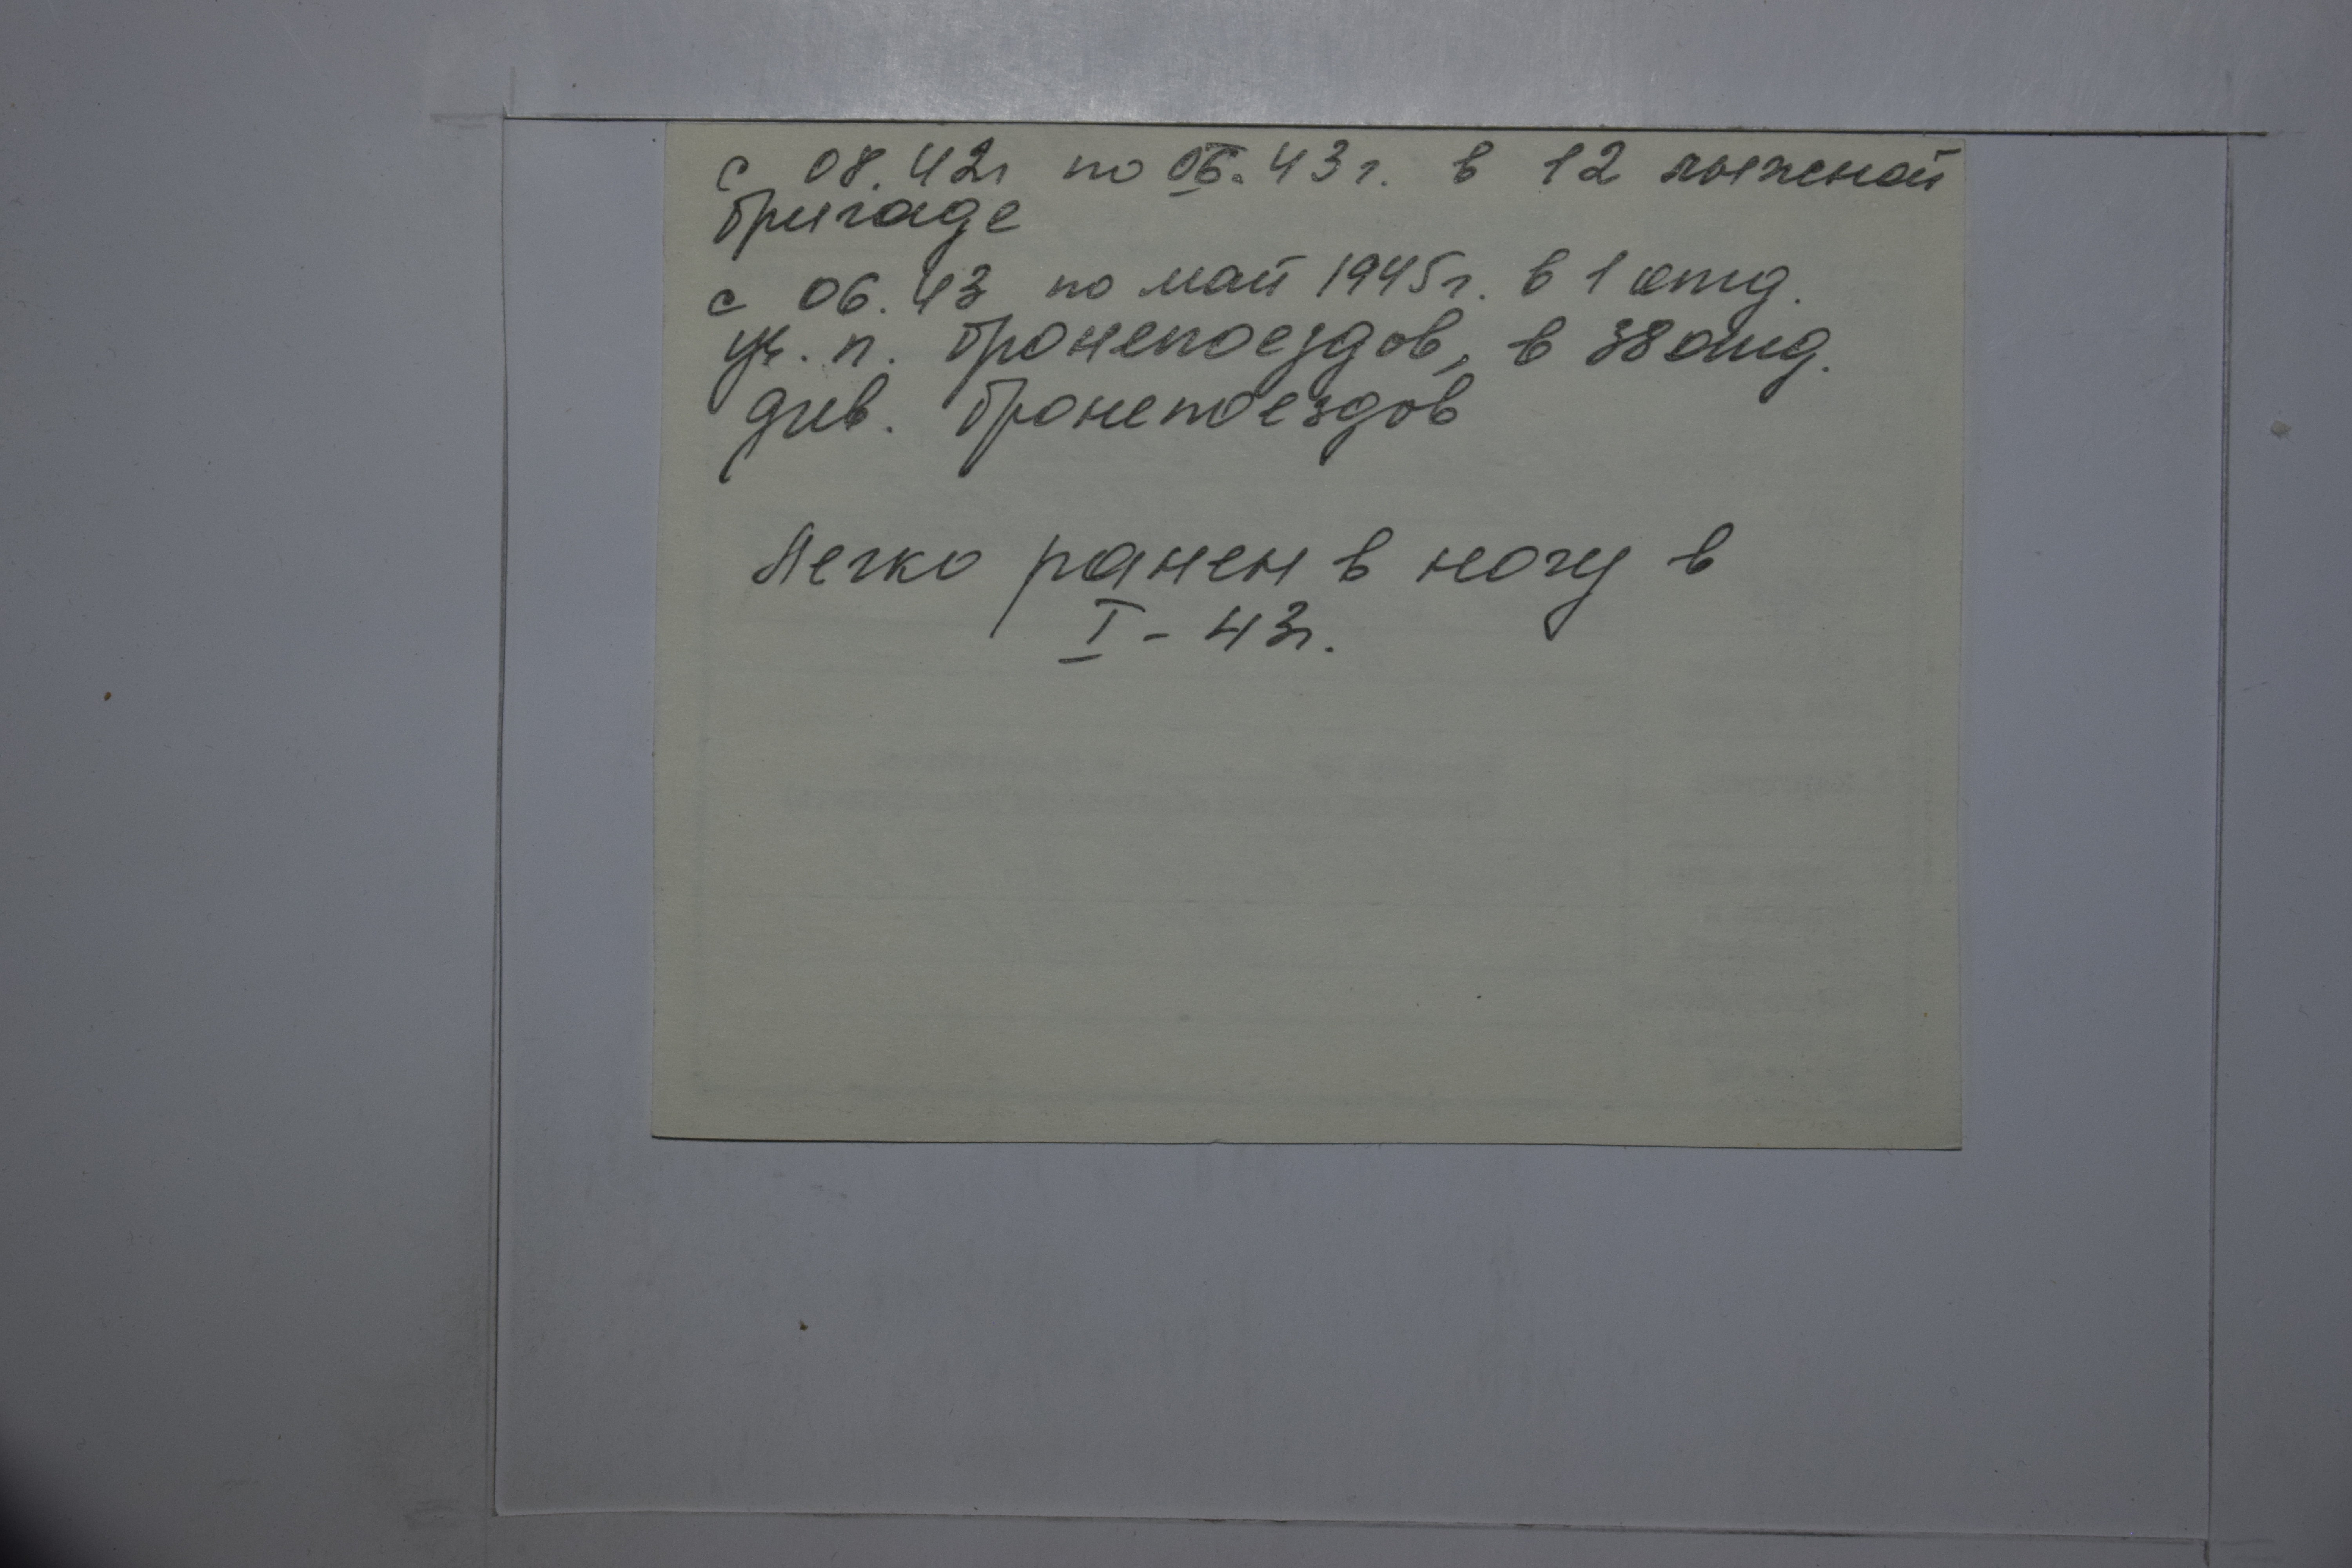 с 08.42г по 06.43г. в 12 лыжной
бригаде
с 06.43 по май 1945г. в 1 отд.
уч. п. бронепоездов, в 38 отд.
див. бронепоездов
Легко ранен в ногу в
I - 43г.